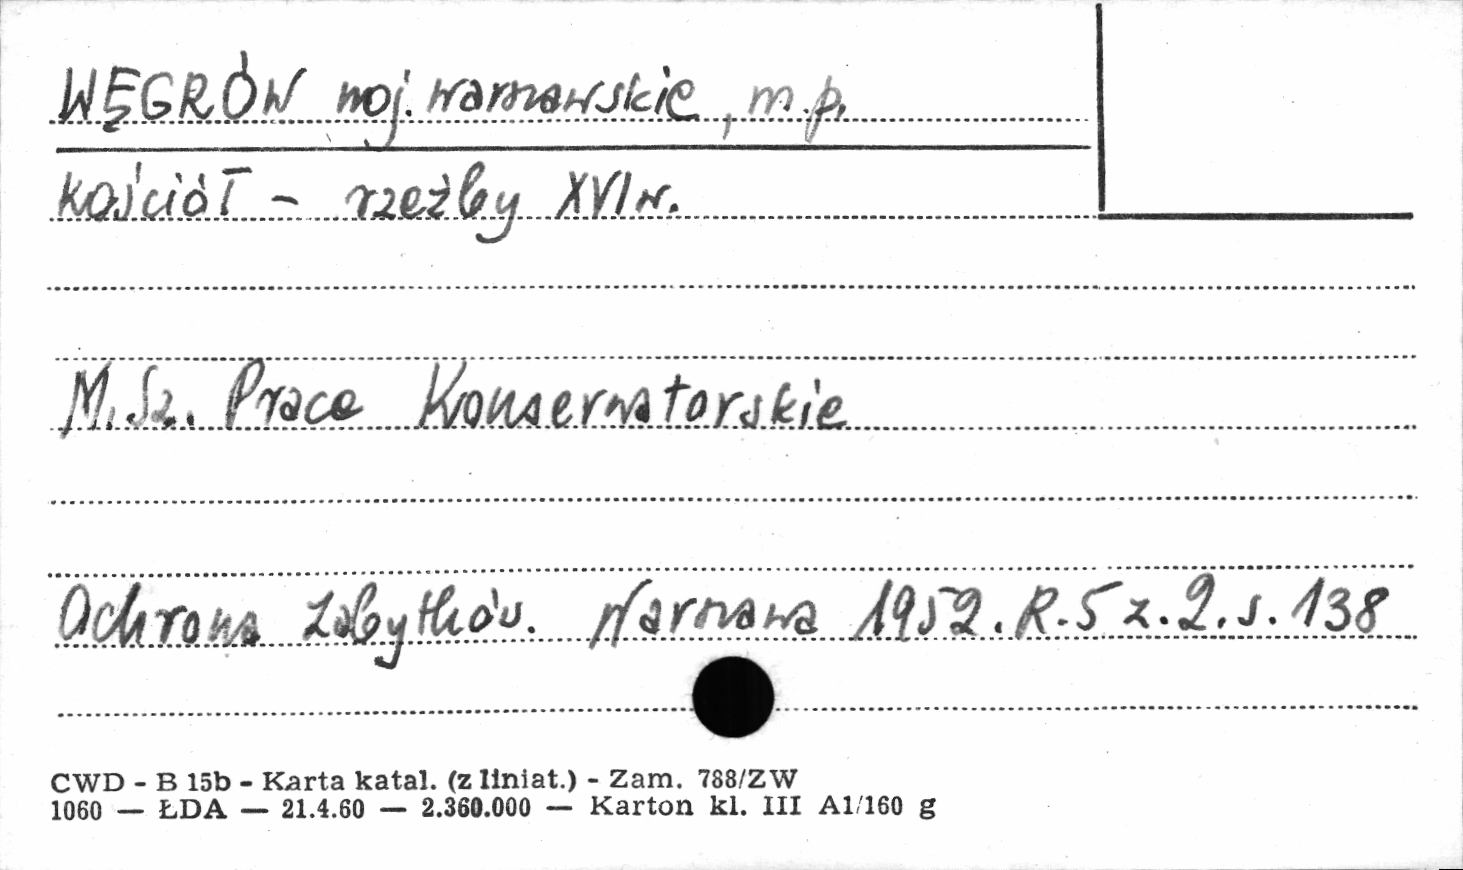 WĘGRÓW woj. warszawskie, m.p.
kościół - rzeźby XVI w.
M. Sz. Prace Konserwatorskie
Ochrona Zabytków. Warszawa 1952. R.5 z.2. s. 138
CWD - B 15b - Karta katal. (z liniat.) - Zam. 788/ZW
1060 — ŁDA — 21.4.60 — 2.360.000 — Karton kl. III A1/160 g